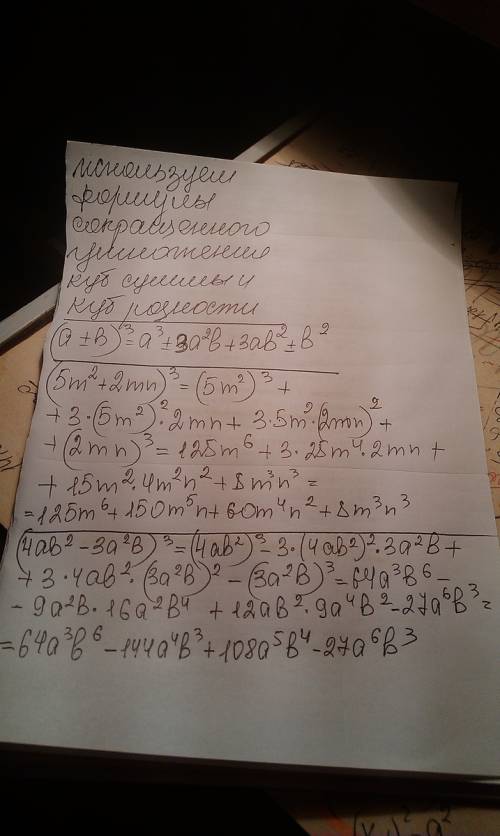 используем
формулы
сокращенного
умножения
куб суммы и
куб разности
(a ± b)³ = a³ ± 3a²b + 3ab² ± b²
(5m² + 2mn)³ = (5m²)³ +
+ 3·(5m²)²·2mn + 3·5m²·(2mn)² +
+ (2mn)³ = 125m⁶ + 3·25m⁴·2mn +
+ 15m²·4m²n² + 8m³n³ =
= 125m⁶ + 150m⁵n + 60m⁴n² + 8m³n³
(4ab² - 3a²b)³ = (4ab²)³ - 3·(4ab²)²·3a²b +
+ 3·4ab²·(3a²b)² - (3a²b)³ = 64a³b⁶ -
- 9a²b·16a²b⁴ + 12ab²·9a⁴b² - 27a⁶b³ =
= 64a³b⁶ - 144a⁴b³ + 108a⁵b⁴ - 27a⁶b³